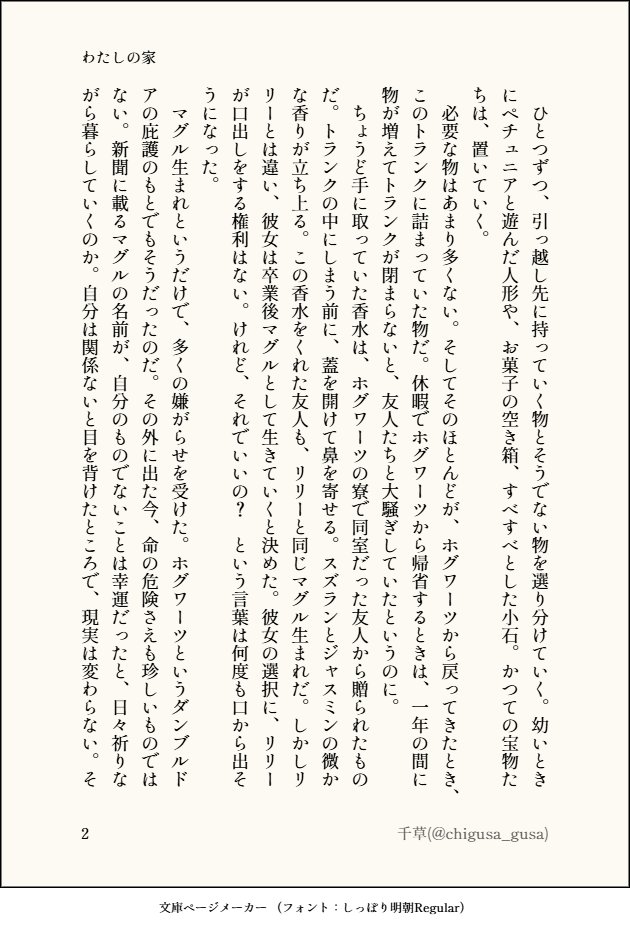 わたしの家
　ひとつずつ、引っ越し先に持っていく物とそうでない物を選り分けていく。幼いとき
にペチュニアと遊んだ人形や、お菓子の空き箱、すべすべとした小石。かつての宝物た
ちは、置いていく。
　必要な物はあまり多くない。そしてそのほとんどが、ホグワーツから戻ってきたとき、
このトランクに詰まっていた物だ。休暇でホグワーツから帰省するときは、一年の間に
物が増えてトランクが閉まらないと、友人たちと大騒ぎしていたというのに。
　ちょうど手に取っていた香水は、ホグワーツの寮で同室だった友人から贈られたもの
だ。トランクの中にしまう前に、蓋を開けて鼻を寄せる。スズランとジャスミンの微か
な香りが立ち上る。この香水をくれた友人も、リリーと同じマグル生まれだ。しかしリ
リーとは違い、彼女は卒業後マグルとして生きていくと決めた。彼女の選択に、リリー
が口出しをする権利はない。けれど、それでいいの？　という言葉は何度も口から出そ
うになった。
　マグル生まれというだけで、多くの嫌がらせを受けた。ホグワーツというダンブルド
アの庇護のもとでもそうだったのだ。その外に出た今、命の危険さえも珍しいものでは
ない。新聞に載るマグルの名前が、自分のものでないことは幸運だったと、日々祈りな
がら暮らしていくのか。自分は関係ないと目を背けたところで、現実は変わらない。そ
2
千草(@chigusa_gusa)
文庫ページメーカー （フォント：しっぽり明朝Regular）